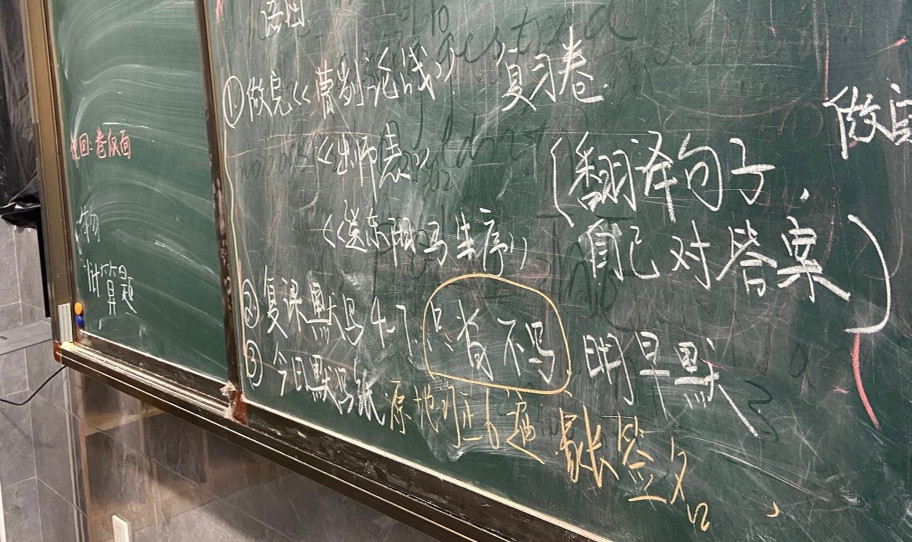 语文
①做完《曹刿论战》复习卷
《出师表》
(翻译句子,
《送东阳马生序》
自己对答案)
②复课默写4-7,只背不写 明早默
③今日默写纸 原地订正6遍 家长签名
做完
卷版面
物
计算题